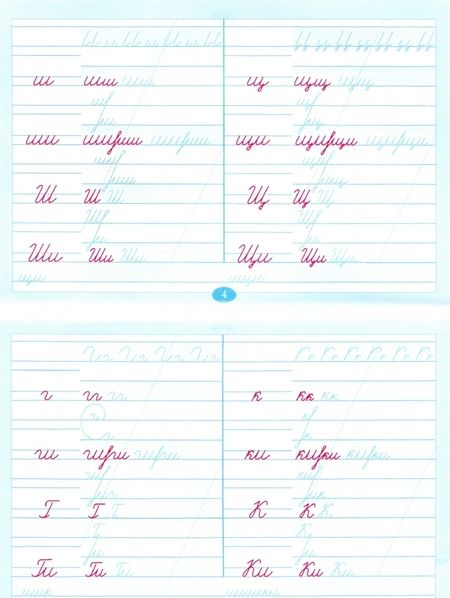 ш шш шш
ши шиши шиши
Ш Ш Ш
Ши Ши Ши
щ щщ щщ
щи щищи щищи
Щ Щ Щ
Щи Щи Щи
4
г гг гг
ги гиги гиги
Г Г Г
Ги Ги Ги
к кк кк
ки кики кики
К К К
Ки Ки Ки